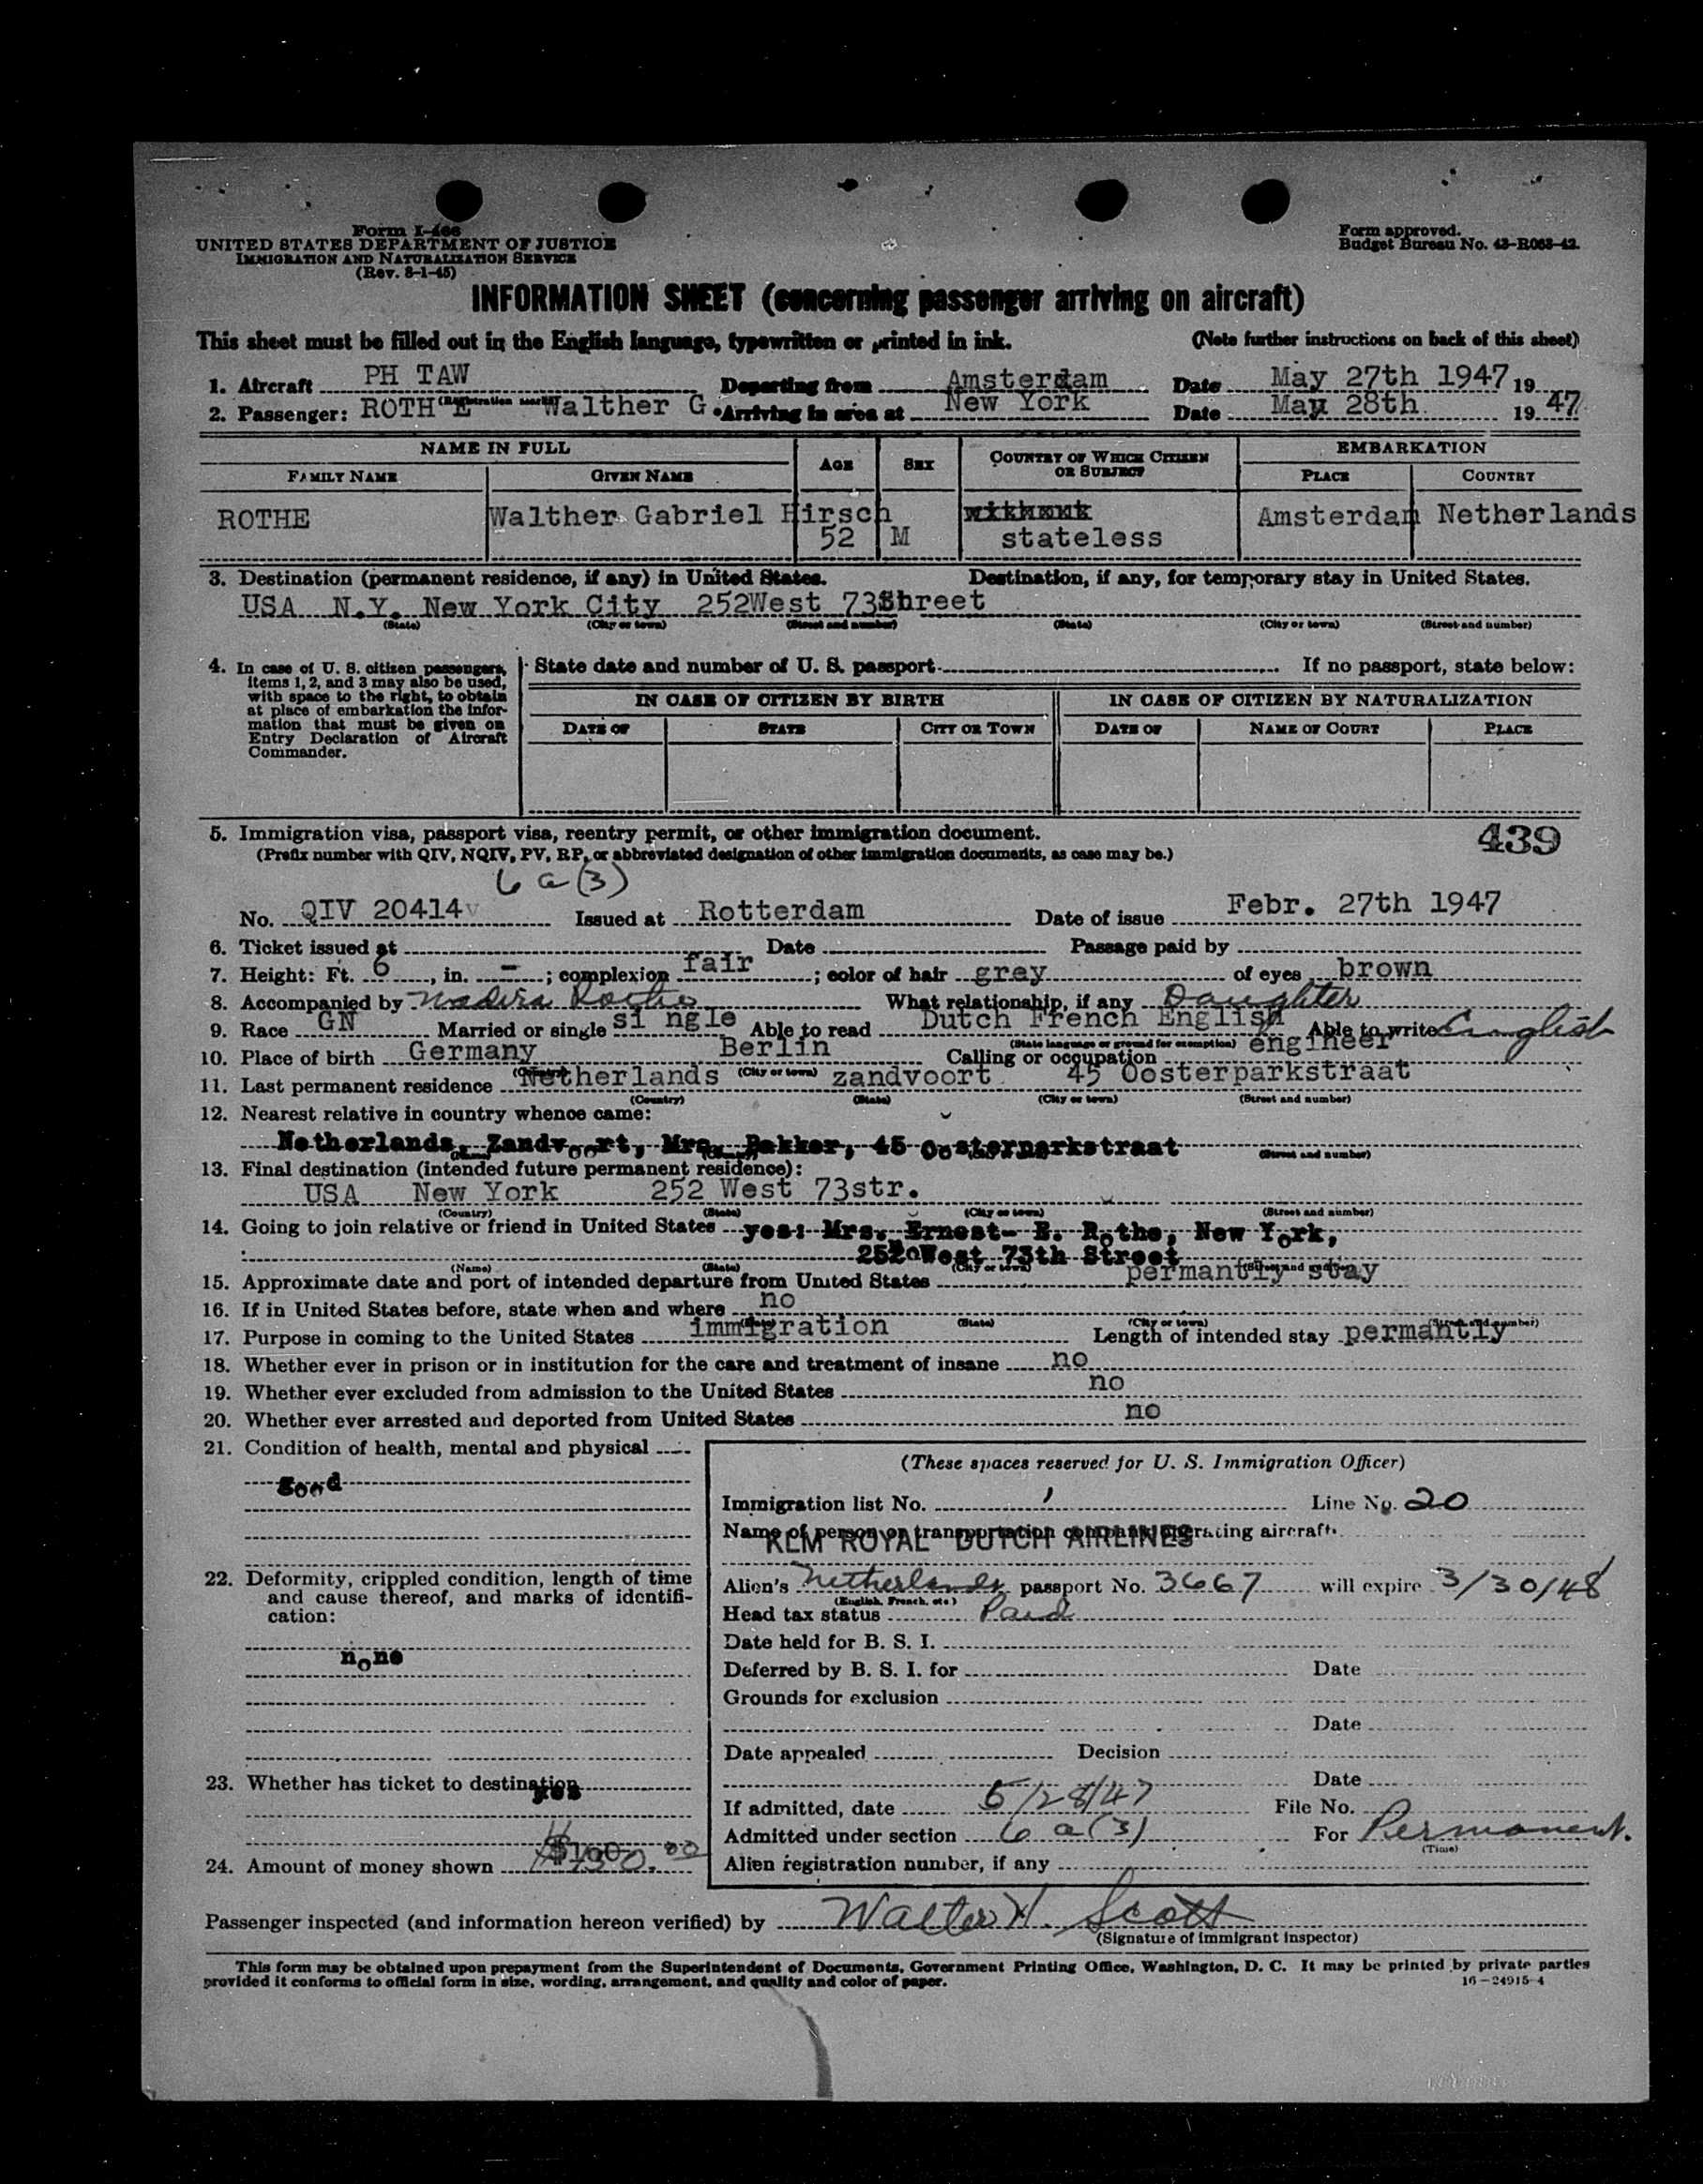 Form I-466
UNITED STATES DEPARTMENT OF JUSTICE
IMMIGRATION AND NATURALIZATION SERVICE
(Rev. 8-1-45)
Form approved.
Budget Bureau No. 43-R063-42.
INFORMATION SHEET (concerning passenger arriving on aircraft)
This sheet must be filled out in the English language, typewritten or printed in ink. (Note further instructions on back of this sheet)
1. Aircraft PH TAW (Registration mark) Departing from Amsterdam Date May 27th 1947 19
2. Passenger: ROTHE Walther G. Arriving in area at New York Date May 28th 19 47
NAME IN FULL AGE SEX COUNTRY OF WHICH CITIZEN OR SUBJECT EMBARKATION
FAMILY NAME GIVEN NAME PLACE COUNTRY
ROTHE Walther Gabriel Hirsch Amsterdam Netherlands
52 M stateless
3. Destination (permanent residence, if any) in United States. Destination, if any, for temporary stay in United States.
USA N.Y. New York City 252West 73Shreet
(State) (City or town) (Street and number) (State) (City or town) (Street and number)
4. In case of U. S. citizen passengers, items 1, 2, and 3 may also be used, with space to the right, to obtain at place of embarkation the information that must be given on Entry Declaration of Aircraft Commander.
State date and number of U. S. passport If no passport, state below:
IN CASE OF CITIZEN BY BIRTH IN CASE OF CITIZEN BY NATURALIZATION
DATE OF STATE CITY OR TOWN DATE OF NAME OF COURT PLACE
5. Immigration visa, passport visa, reentry permit, or other immigration document. 439
(Prefix number with QIV, NQIV, PV, RP, or abbreviated designation of other immigration documents, as case may be.)
6 a (3)
No. QIV 20414 Issued at Rotterdam Date of issue Febr. 27th 1947
6. Ticket issued at Date Passage paid by
7. Height: Ft. 6, in. - ; complexion fair ; color of hair gray of eyes brown
8. Accompanied by What relationship, if any Daughter
9. Race GN Married or single si ngle Able to read Dutch French English Able to write English
(State language or ground for exemption)
10. Place of birth Germany Berlin Calling or occupation engineer
(Country) (City or town)
11. Last permanent residence Netherlands zandvoort 45 Oosterparkstraat
(Country) (State) (City or town) (Street and number)
12. Nearest relative in country whence came:
Netherlands, Zandvoort, Mrs. Bakker, 45 Oosterparkstraat
(Street and number)
13. Final destination (intended future permanent residence):
USA New York 252 West 73str.
(Country) (State) (City or town) (Street and number)
14. Going to join relative or friend in United States yes: Mrs. Ernest- E. Rothe, New York,
252 West 73th Street
(Name) (State) (City or town) (Street and number)
15. Approximate date and port of intended departure from United States permantly stay
16. If in United States before, state when and where no
(State) (City or town) (Street and number)
17. Purpose in coming to the United States immigration Length of intended stay permantly
18. Whether ever in prison or in institution for the care and treatment of insane no
19. Whether ever excluded from admission to the United States no
20. Whether ever arrested and deported from United States no
21. Condition of health, mental and physical
good
22. Deformity, crippled condition, length of time and cause thereof, and marks of identification:
none
23. Whether has ticket to destination
yes
24. Amount of money shown
(These spaces reserved for U. S. Immigration Officer)
Immigration list No. 1 Line No. 20
Name of person or transportation company operating aircraft
KLM ROYAL DUTCH AIRLINES
Alien's Netherlands passport No. 3667 will expire 3/30/48
(English, French, etc.)
Head tax status Paid
Date held for B. S. I.
Deferred by B. S. I. for Date
Grounds for exclusion
Date
Date appealed Decision
Date
If admitted, date 5/28/47 File No.
Admitted under section 6 a (3) For Permanent.
(Time)
Alien registration number, if any
Passenger inspected (and information hereon verified) by Walter H. Scott
(Signature of immigrant inspector)
This form may be obtained upon prepayment from the Superintendent of Documents, Government Printing Office, Washington, D. C. It may be printed by private parties
provided it conforms to official form in size, wording, arrangement, and quality and color of paper. 16-24915-4